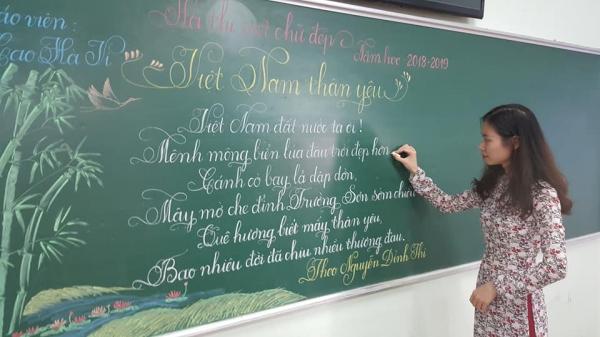 áo viên :
Cao Hà
Hội thi viết chữ đẹp Năm học 2018-2019
Việt Nam thân yêu
Việt Nam đất nước ta ơi !
Mênh mông biển lúa đâu trời đẹp hơn
Cánh cò bay lả dập dờn,
Mây mờ che đỉnh Trường Sơn sớm chiều
Quê hương biết mấy thân yêu,
Bao nhiêu đời đã chịu nhiều thương đau.
Theo Nguyễn Đình Thi